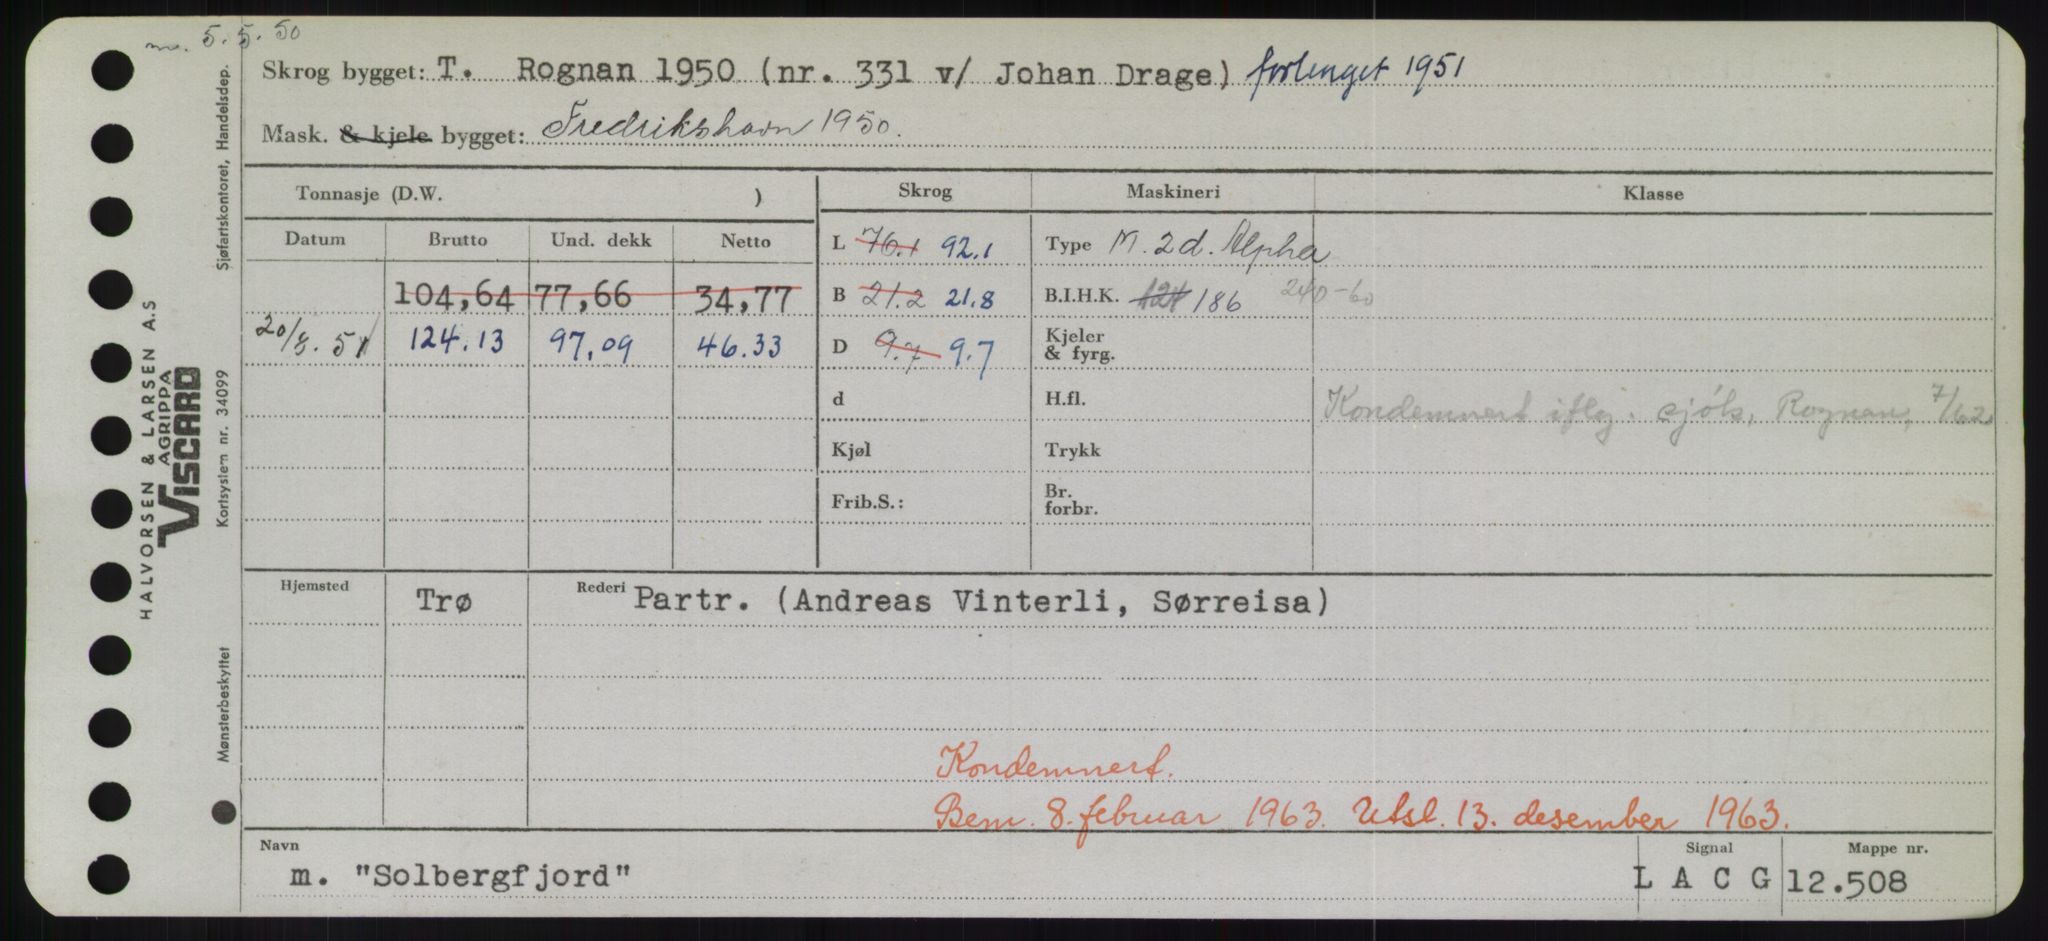 5.5.50
Skrog bygget: T. Rognan 1950 (nr. 331 v/ Johan Drage) forlenget 1951
Mask. & kjele bygget: Fredrikshavn 1950.
Tonnasje (D.W. )
Skrog
Maskineri
Klasse
Datum Brutto Und. dekk Netto
L 76.1 92.1
Type M. 2 d. Alpha
104,64 77,66 34,77
B 21.2 21.8
B.I.H.K. 121 186 240-60
20/8. 51 124.13 97,09 46.33
D 9.7 9.7
Kjeler
& fyrg.
d
H.fl.
Kondemnert iflg. sjók, Rognan, 7/62
Kjøl
Trykk
Frib.S.:
Br.
forbr.
Hjemsted Trø
Rederi Partr. (Andreas Vinterli, Sørreisa)
Kondemnert.
Bem. 8. februar 1963. Utsl. 13. desember 1963.
Navn
m. "Solbergfjord"
Signal
L A C G
Mappe nr.
12.508
Sjøfartskontoret, Handelsdep.
HALVORSEN & LARSEN A.S
AGRIPPA
VISCARD
Kortsystem nr. 34099
Mønsterbeskyttet